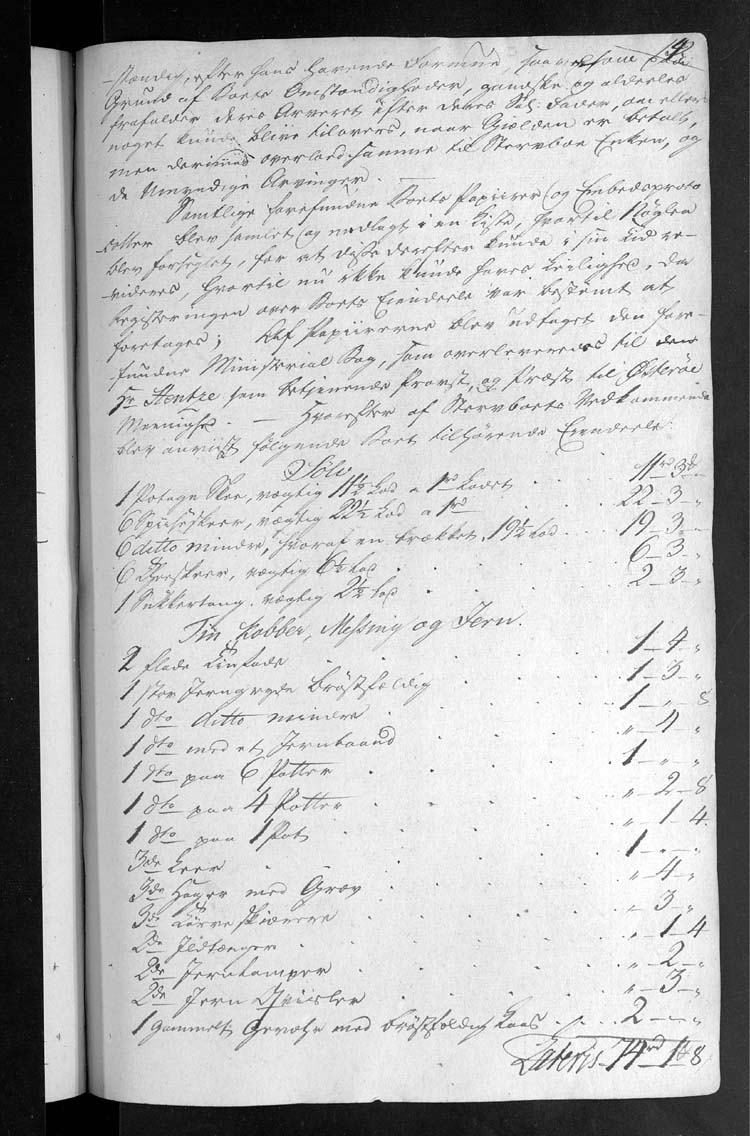 -stændig, efter hans havende Formue, saavelsom paa
Grund af Boets Omstændigheder, gandske og aldeeles
frafalder deres Arveret efter deres Sal: Fader, om ellers
noget kunde blive tilovers, naar Gielden er betalt,
men derimod overlod samme til Stervboe Enken, og
de Umyndige Arvinger. —
Samtlige forefundne Boets Papiirer og Embedsproto
coller blev samlet og nedlagt i en Kiste, hvortil Nøglen
blev forseglet, for at disse derefter kunde i sin Tid re-
videres hvortil nu ikke kunde haves Leilighed, da
Registeringen over Boets Eiendeele var bestemt at
foretages; Af Papiirerne blev udtaget den fore-
fundne Ministerial Bog, som overleveredes til
Hr Hentze som betienende Provst, og Præst til Østerøe
Meenighed. — Hvorefter af Stervboets Vedkommende
blev anviist følgende Boet tilhørende Eiendeele:
Sølv
1 Potage Skee, vægtig 11½ Lod a 1rd Lodet . . 11rd 3
6 Spiiseskeer, vægtig 22½ Lod a 1rd . . 22 - 3 - "
6 ditto mindre, hvoraf en brækket, 19½ Lod . . 19 - 3 - "
6 Theeskeer, vægtig 6½ Lod . . 6 - 3 - "
1 Sukkertang, vægtig 2½ Lod . . 2 - 3 - "
Tin, Kobber, Messing og Jern.
2 flade Tinfade . . 1 - 4 - "
1 stor Jerngryde brøstfældig . . 1 - 3 - "
1 dto ditto mindre . . 1 - " - 8
1 dto med et Jernbaand . . " - 4 - "
1 dto paa 6 Potter . . 1 - " - "
1 dto paa 4 Potter . . " - 2 - 8
1 dto paa 1 Pot . . " - 1 - 4
3de Leer . . 1 - " - "
3de Hager med Grev . . " - 4 - "
3de Tørveskiærere . . " - 3 - "
2de Ildtænger . . " - 1 - 4
2de Jernlamper . . " - 2 - "
2de Jern . . " - 3 - "
1 gammelt Gevæhr med brøstfældig Laas . . 2 - " - "
Lateris 74rd 1 8